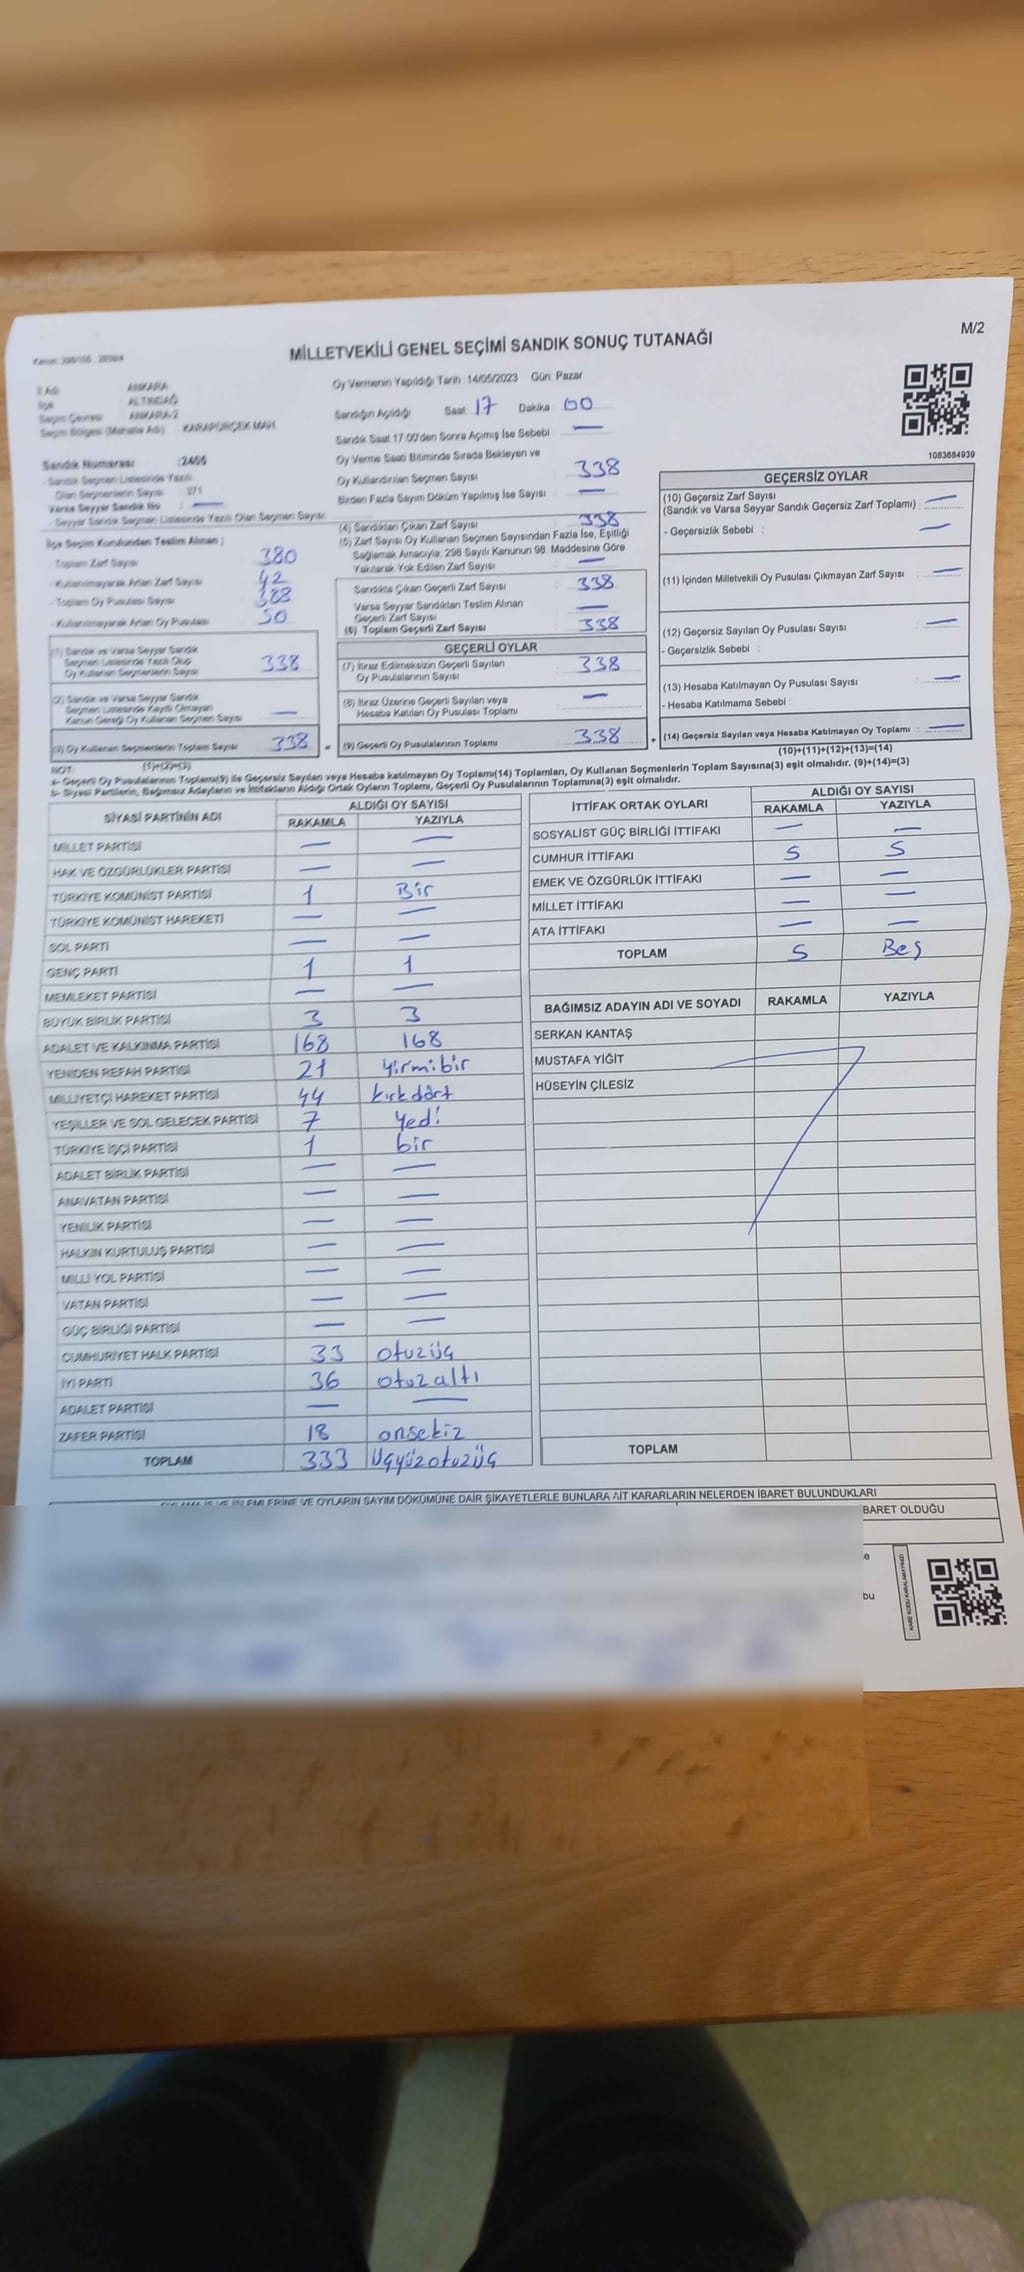 MİLLETVEKİLİ GENEL SEÇİMİ SANDIK SONUÇ TUTANAĞI
M/2
İl Adı : ANKARA
İlçe : ALTINDAĞ
Seçim Çevresi : ANKARA-2
Seçim Bölgesi (Mahalle Adı) : KARAPÜRÇEK MAH.
Oy Vermenin Yapıldığı Tarih :14/05/2023 Gün: Pazar
Sandığın Açıldığı Saat 17 Dakika 00
Sandık Saat 17:00'den Sonra Açılmış İse Sebebi : —
Oy Verme Saati Bitiminde Sırada Bekleyen ve
Oy Kullandırılan Seçmen Sayısı 338
Birden Fazla Sayım Döküm Yapılmış İse Sayısı —
1083684939
Sandık Numarası
- Sandık Seçmen Listesinde Yazılı
Olan Seçmenlerin Sayısı : 371
Varsa Seyyar Sandık No —
- Seyyar Sandık Seçmen Listesinde Yazılı Olan Seçmen Sayısı:
İlçe Seçim Kurulundan Teslim Alınan ;
- Toplam Zarf Sayısı 380
- Kullanılmayarak Artan Zarf Sayısı 42
- Toplam Oy Pusulası Sayısı 388
- Kullanılmayarak Artan Oy Pusulası 50
(4) Sandıktan Çıkan Zarf Sayısı 338
(5) Zarf Sayısı Oy Kullanan Seçmen Sayısından Fazla İse, Eşitliği
Sağlamak Amacıyla, 298 Sayılı Kanunun 98. Maddesine Göre
Yakılarak Yok Edilen Zarf Sayısı —
Sandıkta Çıkan Geçerli Zarf Sayısı 338
Varsa Seyyar Sandıktan Teslim Alınan
Geçerli Zarf Sayısı —
(6) Toplam Geçerli Zarf Sayısı 338
(1) Sandık ve Varsa Seyyar Sandık
Seçmen Listesinde Yazılı Olup
Oy Kullanan Seçmenlerin Sayısı 338
(2) Sandık ve Varsa Seyyar Sandık
Seçmen Listesinde Kayıtlı Olmayan
Kanun Gereği Oy Kullanan Seçmen Sayısı —
(3) Oy Kullanan Seçmenlerin Toplam Sayısı 338
(1)+(2)=(3)
GEÇERLİ OYLAR
(7) İtiraz Edilmeksizin Geçerli Sayılan
Oy Pusulalarının Sayısı 338
(8) İtiraz Üzerine Geçerli Sayılan veya
Hesaba Katılan Oy Pusulası Toplamı —
= (9) Geçerli Oy Pusulalarının Toplamı 338
GEÇERSİZ OYLAR
(10) Geçersiz Zarf Sayısı
(Sandık ve Varsa Seyyar Sandık Geçersiz Zarf Toplamı) : —
- Geçersizlik Sebebi : —
(11) İçinden Milletvekili Oy Pusulası Çıkmayan Zarf Sayısı : —
(12) Geçersiz Sayılan Oy Pusulası Sayısı : —
- Geçersizlik Sebebi :
(13) Hesaba Katılmayan Oy Pusulası Sayısı : —
- Hesaba Katılmama Sebebi :
+ (14) Geçersiz Sayılan veya Hesaba Katılmayan Oy Toplamı : —
(10)+(11)+(12)+(13)=(14)
NOT:
a- Geçerli Oy Pusulalarının Toplamı(9) ile Geçersiz Sayılan veya Hesaba katılmayan Oy Toplamı(14) Toplamları, Oy Kullanan Seçmenlerin Toplam Sayısına(3) eşit olmalıdır. (9)+(14)=(3)
b- Siyasi Partilerin, Bağımsız Adayların ve İttifakların Aldığı Ortak Oyların Toplamı, Geçerli Oy Pusulalarının Toplamına(3) eşit olmalıdır.
SİYASİ PARTİNİN ADI ALDIĞI OY SAYISI
RAKAMLA YAZIYLA
MİLLET PARTİSİ — —
HAK VE ÖZGÜRLÜKLER PARTİSİ — —
TÜRKİYE KOMÜNİST PARTİSİ 1 Bir
TÜRKİYE KOMÜNİST HAREKETİ — —
SOL PARTİ — —
GENÇ PARTİ 1 1
MEMLEKET PARTİSİ — —
BÜYÜK BİRLİK PARTİSİ 3 3
ADALET VE KALKINMA PARTİSİ 168 168
YENİDEN REFAH PARTİSİ 21 yirmibir
MİLLİYETÇİ HAREKET PARTİSİ 44 kırkdört
YEŞİLLER VE SOL GELECEK PARTİSİ 7 Yedi
TÜRKİYE İŞÇİ PARTİSİ 1 bir
ADALET BİRLİK PARTİSİ — —
ANAVATAN PARTİSİ — —
YENİLİK PARTİSİ — —
HALKIN KURTULUŞ PARTİSİ — —
MİLLİ YOL PARTİSİ — —
VATAN PARTİSİ — —
GÜÇ BİRLİĞİ PARTİSİ — —
CUMHURİYET HALK PARTİSİ 33 otuzüç
İYİ PARTİ 36 otuzaltı
ADALET PARTİSİ — —
ZAFER PARTİSİ 18 onsekiz
TOPLAM 333 üçyüzotuzüç
İTTİFAK ORTAK OYLARI ALDIĞI OY SAYISI
RAKAMLA YAZIYLA
SOSYALİST GÜÇ BİRLİĞİ İTTİFAKI — —
CUMHUR İTTİFAKI 5 5
EMEK VE ÖZGÜRLÜK İTTİFAKI — —
MİLLET İTTİFAKI — —
ATA İTTİFAKI — —
TOPLAM 5 Beş
BAĞIMSIZ ADAYIN ADI VE SOYADI RAKAMLA YAZIYLA
SERKAN KANTAŞ
MUSTAFA YİĞİT
HÜSEYİN ÇİLESİZ
TOPLAM
İŞLEMLERİNE VE OYLARIN SAYIM DÖKÜMÜNE DAİR ŞİKAYETLERLE BUNLARA AİT KARARLARIN NELERDEN İBARET BULUNDUKLARI
BARET OLDUĞU
bu